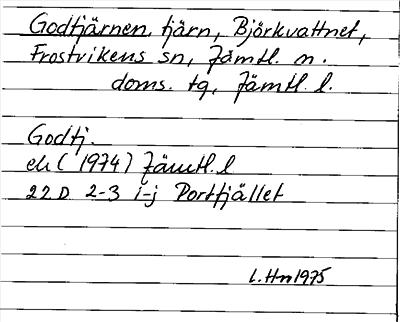 Godtjärnen, tjärn, Björkvattnet,
Frostvikens sn, Jämtl. n.
doms. tg, Jämtl. l.
Godtj.
ek (1974) Jämtl. l
22D 2-3 i-j Portfjället
L. Hn 1975